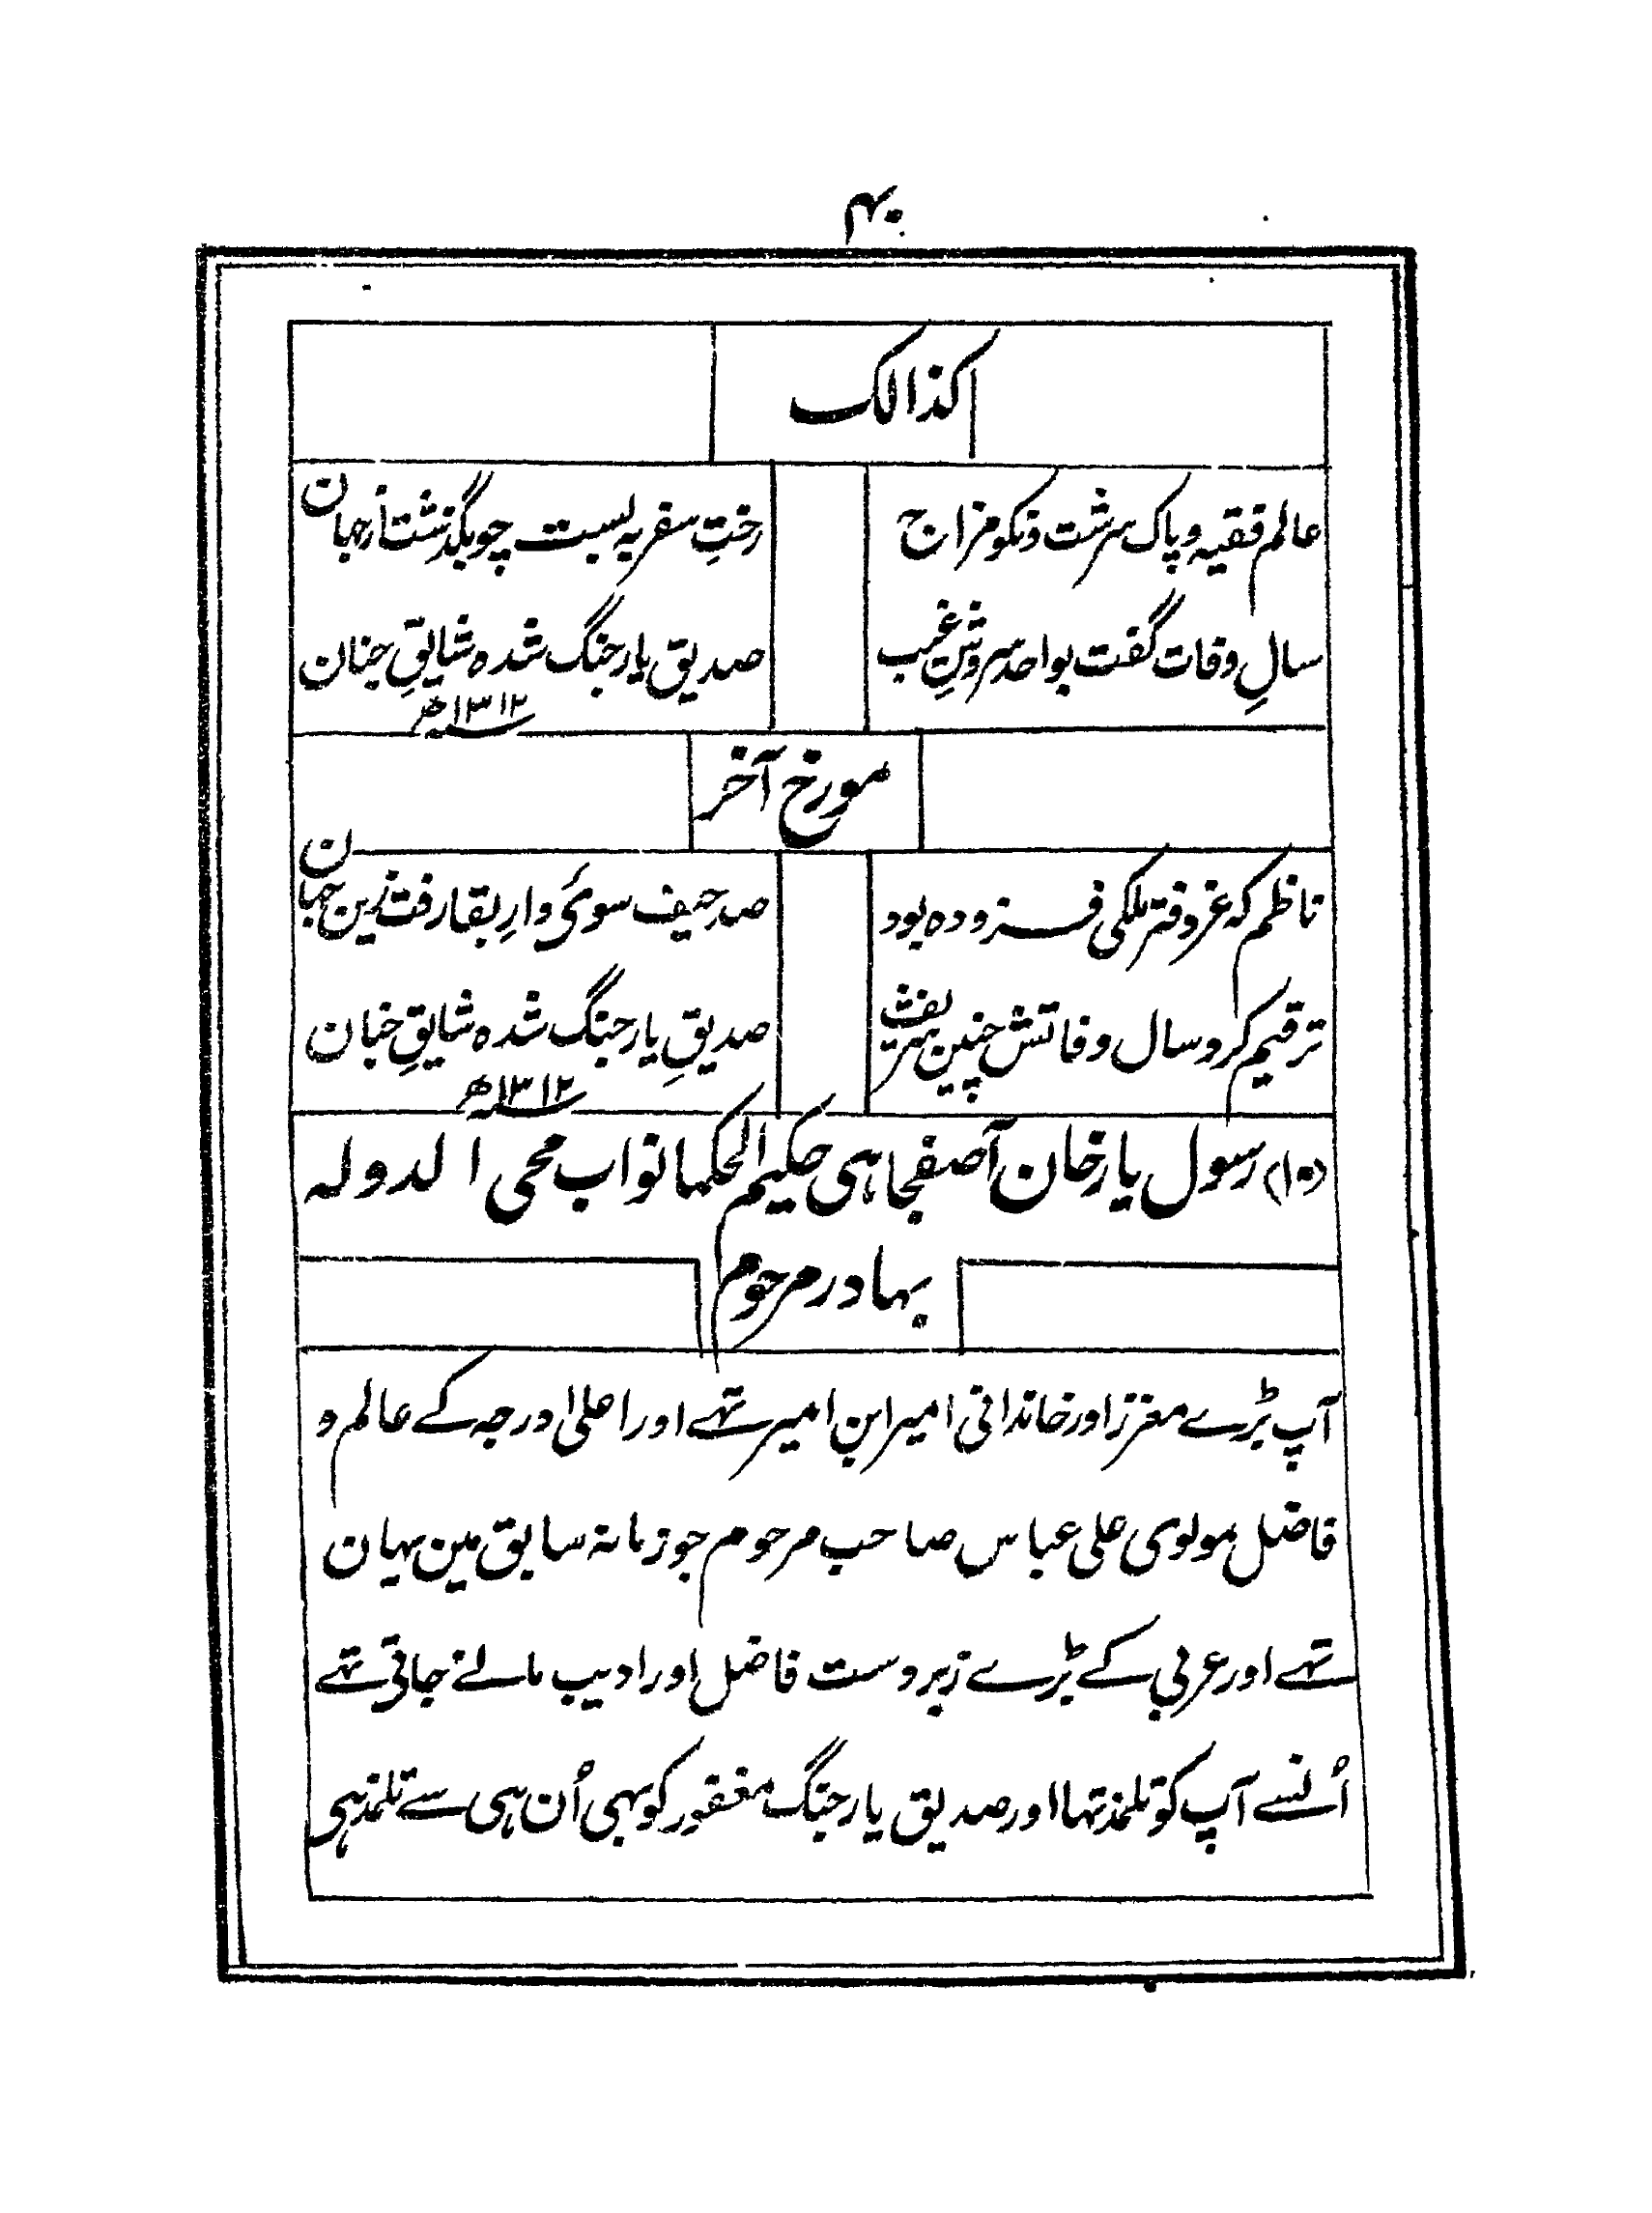 ۴۰
کذالک
عالم فقیہ و پاک سرشت و نکو مزاج
رختِ سفر بہ بست چو بگذشت از جہان
سالِ وفات گفت بواحد سروشِ غیب
صدیق یار جنگ شدہ شایقِ جنان
۱۳۱۲ھ
مورخ آخر
ناظم کہ عز و فتر ملکی فزودہ بود
صد حیف سوئ دارِ بقا رفت زین جہان
ترقیم کرد سال وفاتش چنین
صدیقِ یار جنگ شدہ شایقِ جنان
۱۳۱۲ھ
(۱۰) رسول یار خان آصفجاہی حکیم الحکما نواب محی الدولہ
بہادر مرحوم
آپ بڑے معزز اور خاندانی امیر ابن امیر تہے اور اعلیٰ درجہ کے عالم و
فاضل مولوی علی عباس صاحب مرحوم جو زمانہ سابق مین یہان
تہے اور عربی کے بڑے زبردست فاضل اور ادیب مانے جاتی تہے
اُنسے آپ کو تلمذ تہا اور صدیق یار جنگ مغفور کو بہی اُن ہی سے تلمذ ہی